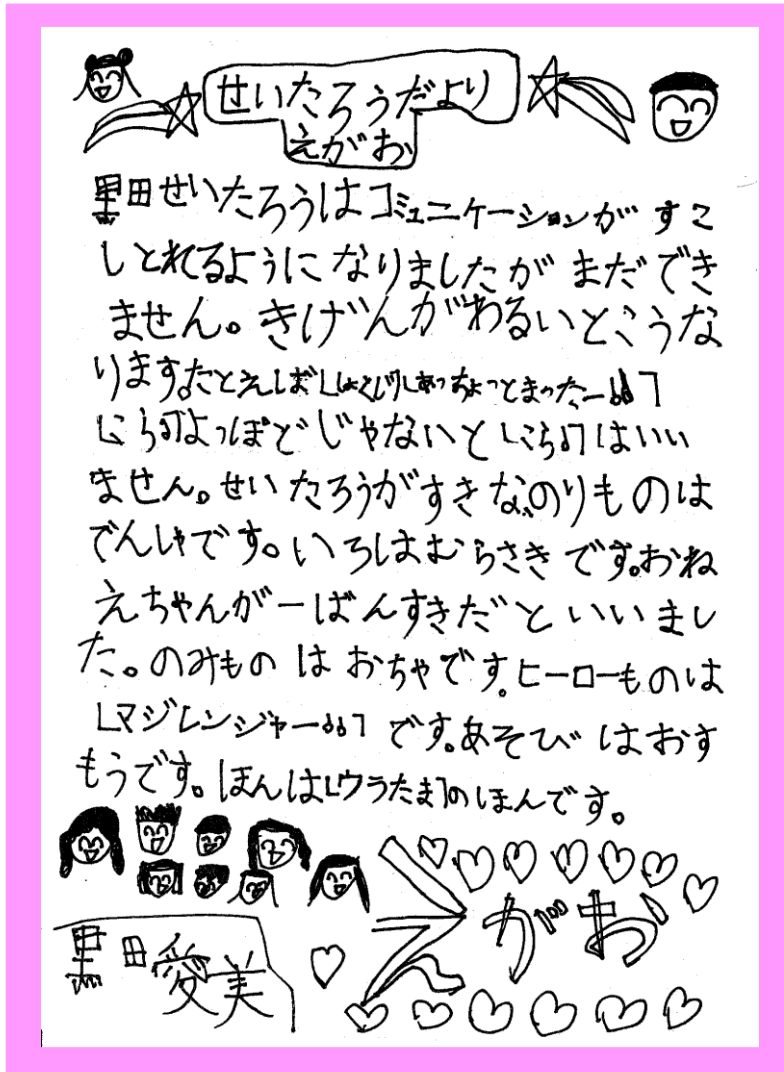 せいたろうだより
えがお
黒田せいたろうはコミュニケーションがすこ
しとれるようになりましたがまだでき
ません。きげんがわるいとこうな
ります。たとえば「しょくじ「しあっちょっとまったー!!」
「こら!!」よっぽどじゃないと「こら!!」はいい
ません。せいたろうがすきなのりものは
でんしゃです。いろはむらさきです。おね
えちゃんが一ばんすきだといいまし
た。のみものはおちゃです。ヒーローものは
「マジレンジャー!!」です。あそびはおす
もうです。ほんは「ウラたま」のほんです。
えがお
黒田愛美